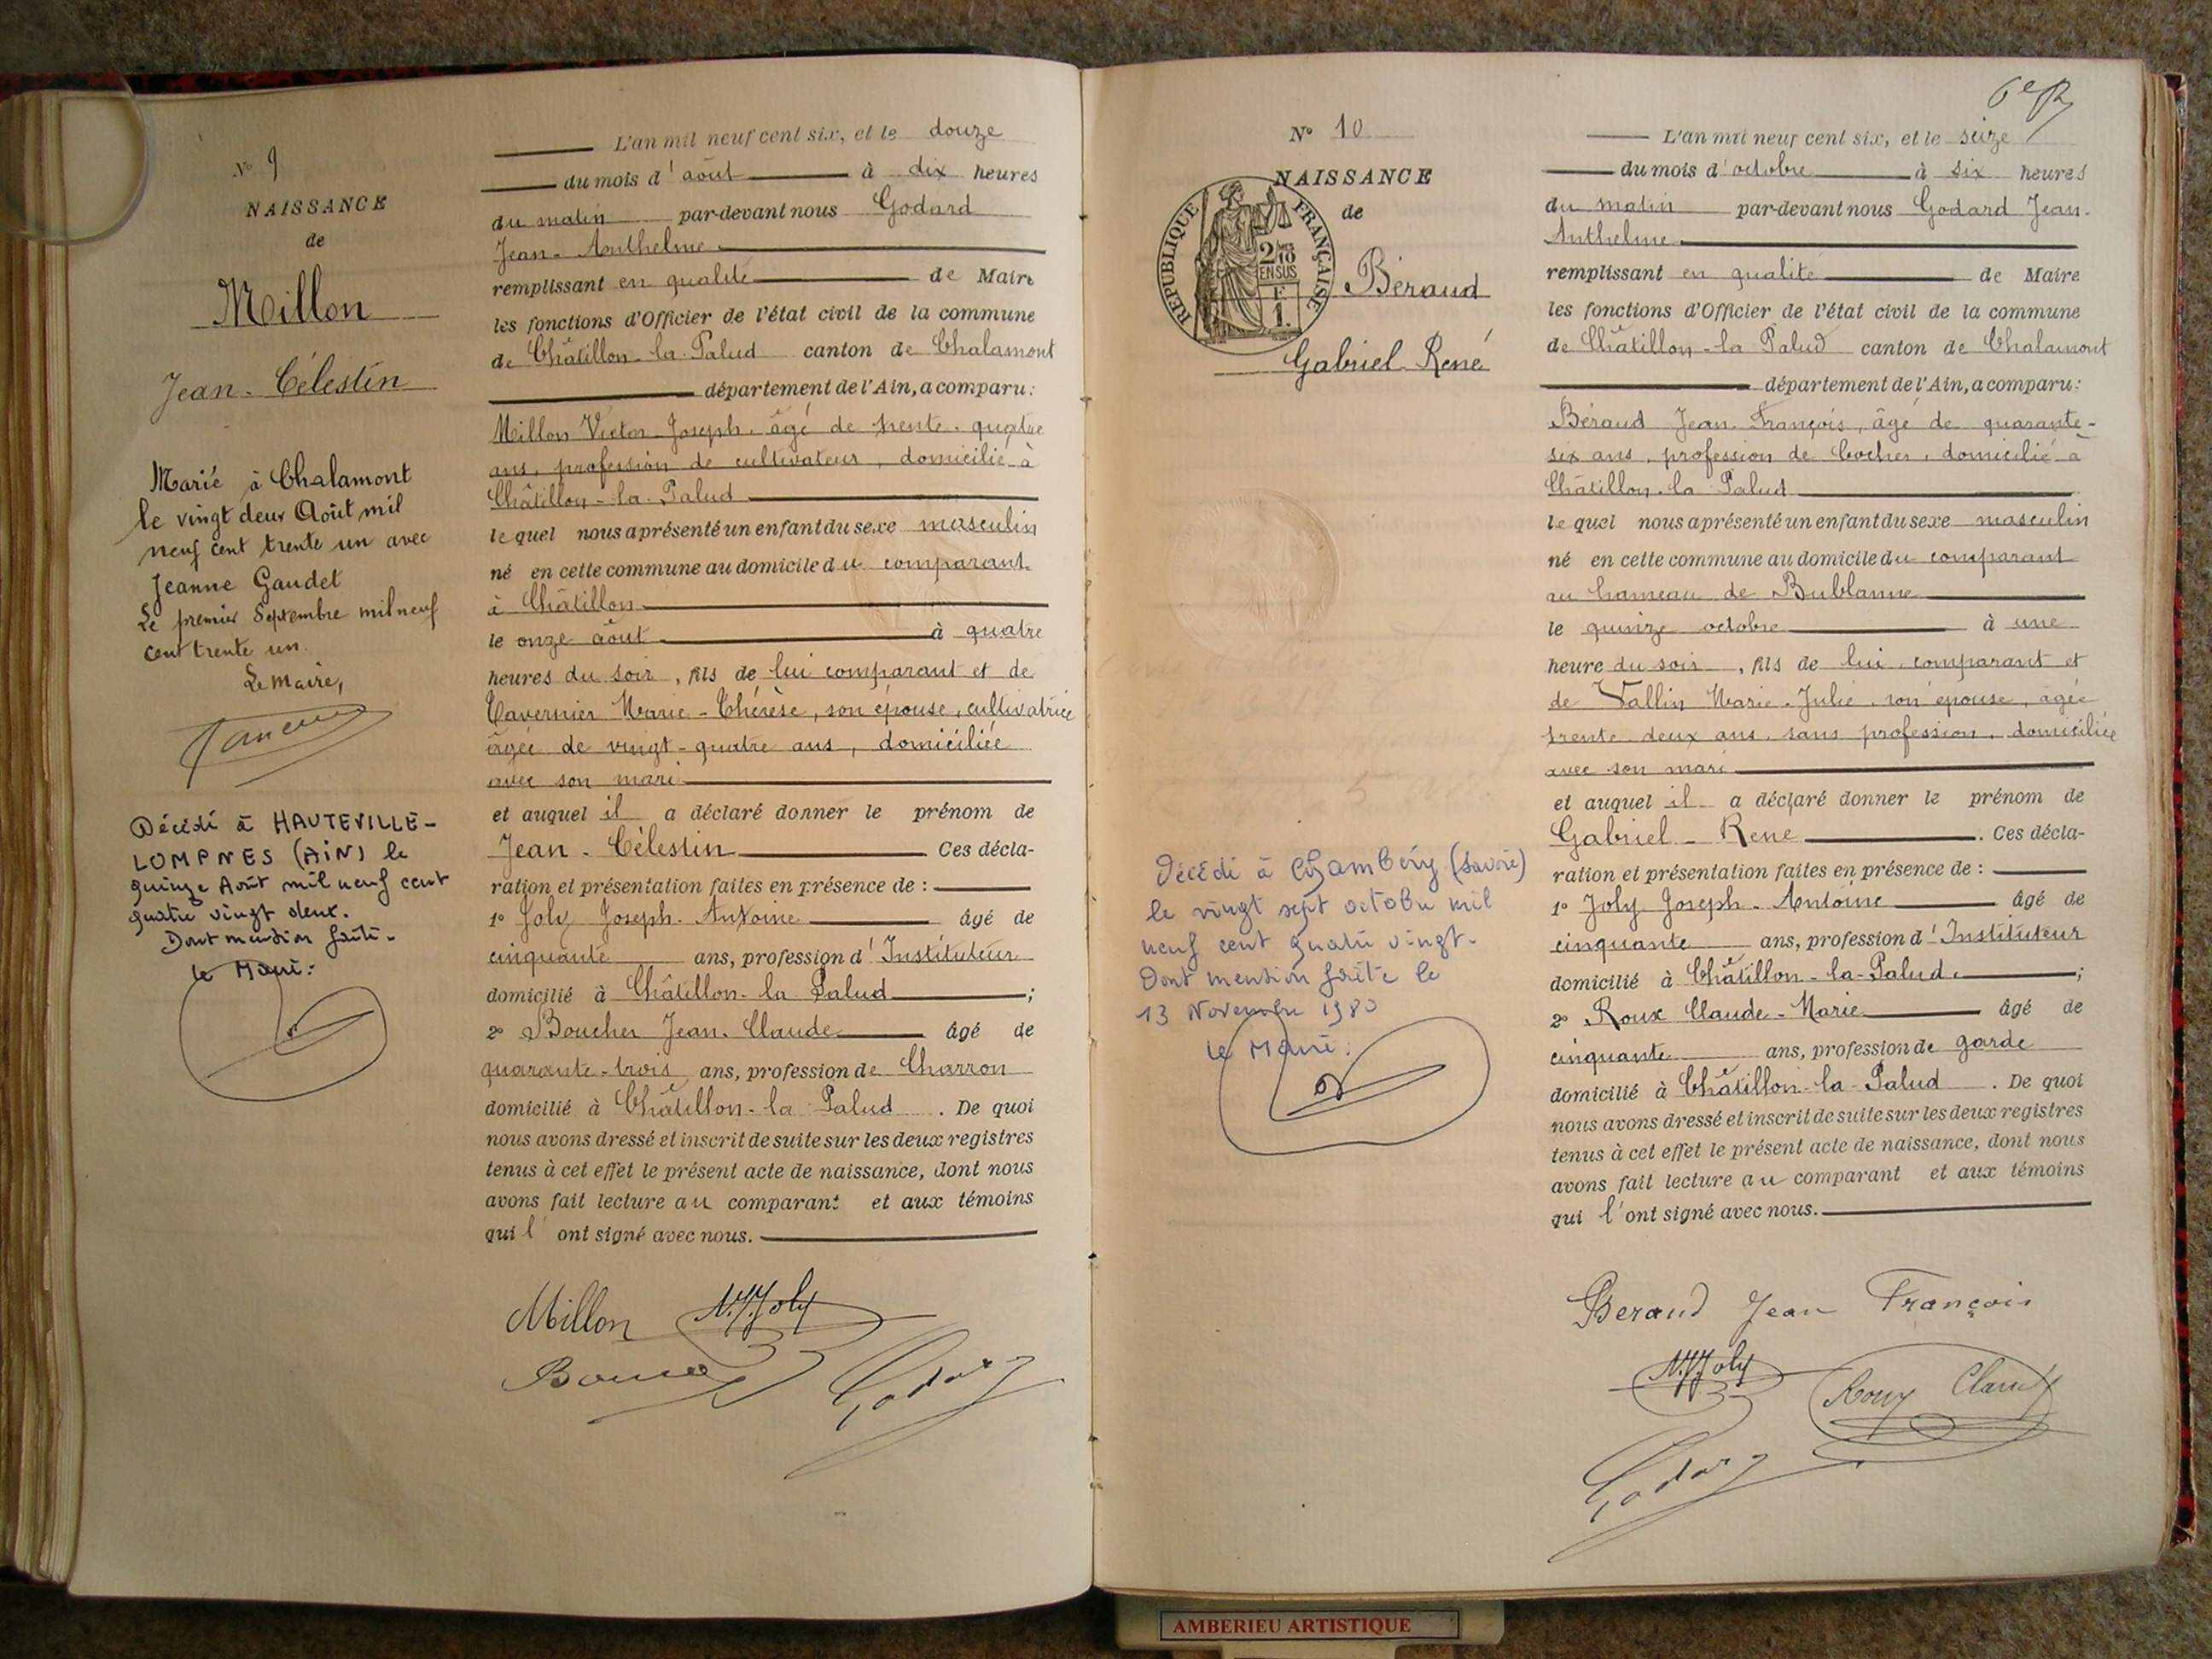 Nº 9
NAISSANCE
de
Millon
Jean-Célestin
Marié à Chalamont
le vingt deux Août mil
neuf cent trente un avec
Jeanne Gaudet
Le premier Septembre mil neuf
cent trente un.
Le maire,
Décédé à HAUTEVILLE-
LOMPNES (AIN) le
quinze Août mil neuf cent
quatre vingt deux.
Dont mention faite.
le Maire:
L'an mil neuf cent six, et le douze
du mois d'août à dix heures
du matin par-devant nous Godard
Jean-Anthelme
remplissant en qualité de Maire
les fonctions d'Officier de l'état civil de la commune
de Châtillon-la-Palud canton de Chalamont
département de l'Ain, a comparu:
Millon Victor-Joseph, âgé de trente-quatre
ans, profession de cultivateur, domicilié à
Châtillon-la-Palud
lequel nous a présenté un enfant du sexe masculin
né en cette commune au domicile du comparant
à Châtillon
le onze août à quatre
heures du soir, fils de lui comparant et de
Tavernier Marie-Thérèse, son épouse, cultivatrice
âgée de vingt-quatre ans, domiciliée
avec son mari
et auquel il a déclaré donner le prénom de
Jean-Célestin Ces décla-
ration et présentation faites en présence de :
1º Joly Joseph-Antoine âgé de
cinquante ans, profession d'Instituteur
domicilié à Châtillon-la-Palud ;
2º Boucher Jean-Claude âgé de
quarante-trois ans, profession de Charron
domicilié à Châtillon-la Palud. De quoi
nous avons dressé et inscrit de suite sur les deux registres
tenus à cet effet le présent acte de naissance, dont nous
avons fait lecture au comparant et aux témoins
qui l'ont signé avec nous.
Millon Joly
Godard
6e R
Nº 10
NAISSANCE
de
REPUBLIQUE FRANÇAISE
2/10
EN SUS
F
1.
Béraud
Gabriel-René
Décédé à Chambéry (Savoie)
le vingt sept octobre mil
neuf cent quatre vingt.
Dont mention faite le
13 Novembre 1980
le Maire:
L'an mil neuf cent six, et le seize
du mois d'octobre à six heures
du matin par-devant nous Godard Jean-
Anthelme
remplissant en qualité de Maire
les fonctions d'Officier de l'état civil de la commune
de Châtillon-la Palud canton de Chalamont
département de l'Ain, a comparu:
Béraud Jean François, âgé de quarante-
six ans, profession de Cocher, domicilié à
Châtillon-la Palud
lequel nous a présenté un enfant du sexe masculin
né en cette commune au domicile du comparant
au hameau de Bublanne
le quinze octobre à une
heure du soir, fils de lui comparant et
de Vallin Marie-Julie, son épouse, agée
trente deux ans, sans profession, domiciliée
avec son mari
et auquel il a déclaré donner le prénom de
Gabriel-René. Ces décla-
ration et présentation faites en présence de :
1º Joly Joseph-Antoine âgé de
cinquante ans, profession d'Instituteur
domicilié à Châtillon-la-Palud. ;
2º Roux Claude-Marie âgé de
cinquante ans, profession de garde
domicilié à Châtillon-la-Palud. De quoi
nous avons dressé et inscrit de suite sur les deux registres
tenus à cet effet le présent acte de naissance, dont nous
avons fait lecture au comparant et aux témoins
qui l'ont signé avec nous.
Beraud Jean François
Joly Roux Claude
Godard
AMBERIEU ARTISTIQUE